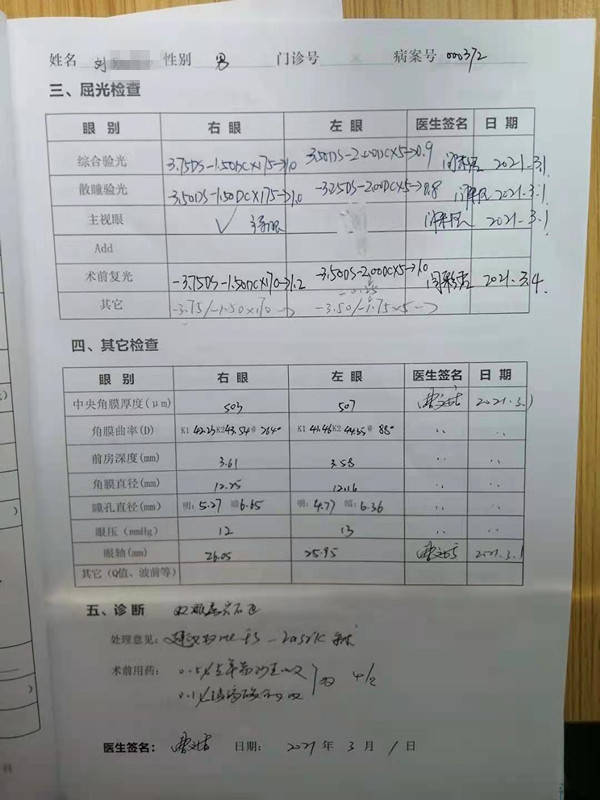 姓名 刘 性别 男 门诊号 病案号 000372
三、屈光检查
眼 别 右 眼 左 眼 医生签名 日 期
综合验光 -3.75DS-1.50DC×175→1.0 -3.50DS-2.00DC×5→0.9 2021.3.1
散瞳验光 -3.50DS-1.50DC×175→1.0 -3.25DS-2.00DC×5→0.8 2021.3.1
主视眼 ✓ 主视眼 2021-3.1
Add
术前复光 -3.75DS-1.50DC×170→1.2 -3.50DS-2.00DC×5→1.0 2021.3.4
其它 -3.75/-1.50×170→ -3.50/-1.75×5→
四、其它检查
眼 别 右 眼 左 眼 医生签名 日 期
中央角膜厚度(μm) 503 507 2021.3.1
角膜曲率(D) K1 42.23 K2 43.54@ K1 41.46 K2 @ 88°
前房深度(mm) 3.61 3.58 .. ..
角膜直径(mm) 12.25 12.16 .. ..
瞳孔直径(mm) 明: 5.27 暗: 6.65 明: 4.77 暗: 6.36 .. ..
眼压 (mmHg) 12 13 .. ..
眼轴(mm) 26.05 25.95 2021.3.1
其它(Q值、波前等)
五、诊断 双眼屈光不正
处理意见: 建议 FS-lasik
术前用药: 0.5%左氧氟沙星
0.1%
医生签名: 日期: 2021 年 3 月 1 日